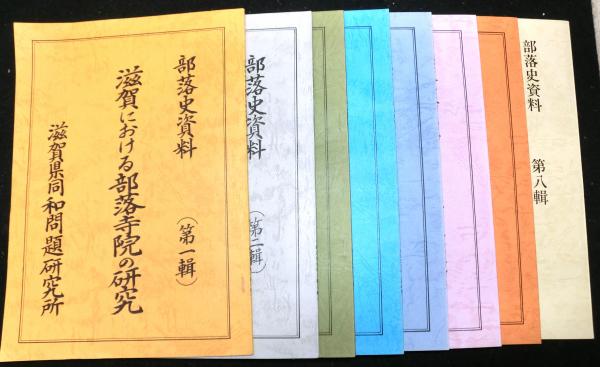 部落史資料 (第一輯)
滋賀における部落寺院の研究
滋賀県同和問題研究所
部落史資料 (第二輯)
部落史資料 第八輯